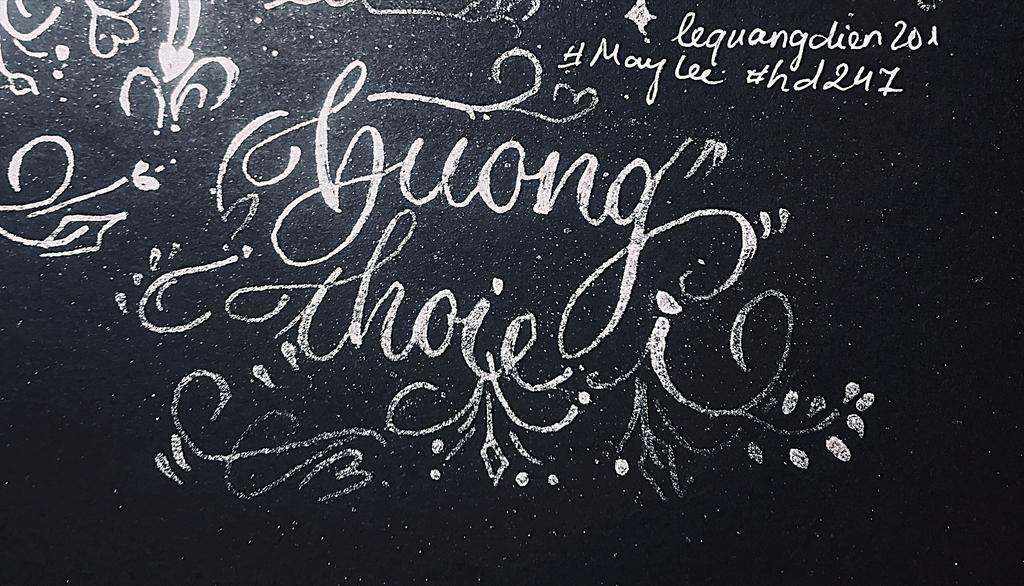 lequangdien 201
#MayLee #hd247
buông
thoie i